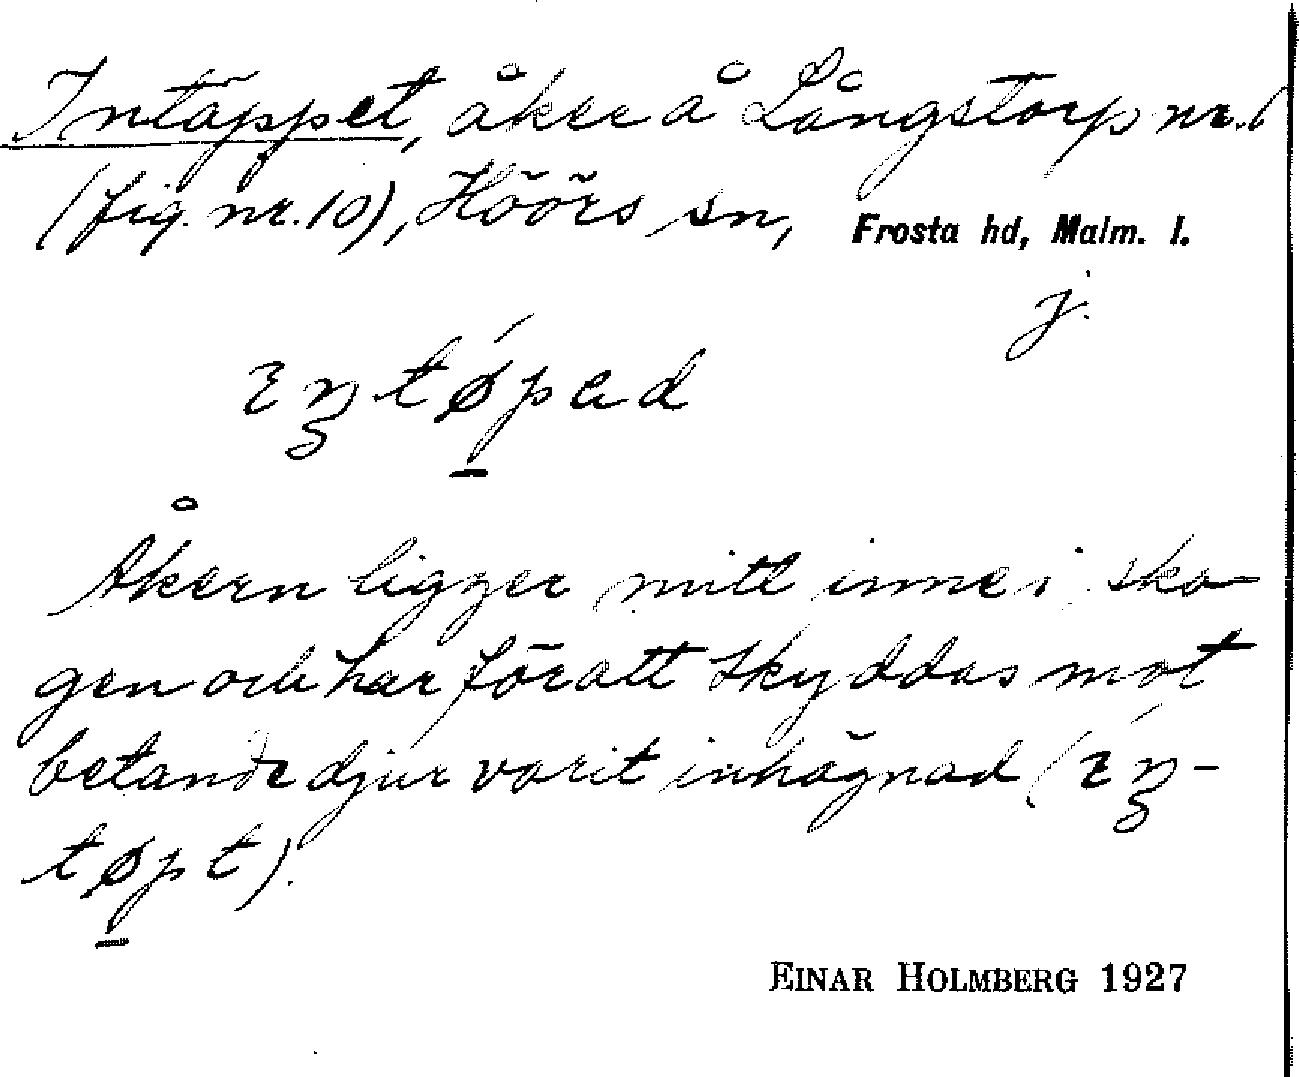 Intäppet, åker å Långstorp nr. 6
(fig. nr. 10), Höörs sn, Frosta hd, Malm. l.
j.
Åkern ligger mitt inne i sko-
gen och har föratt skyddas mot
betande djur varit inhägnad
EINAR HOLMBERG 1927